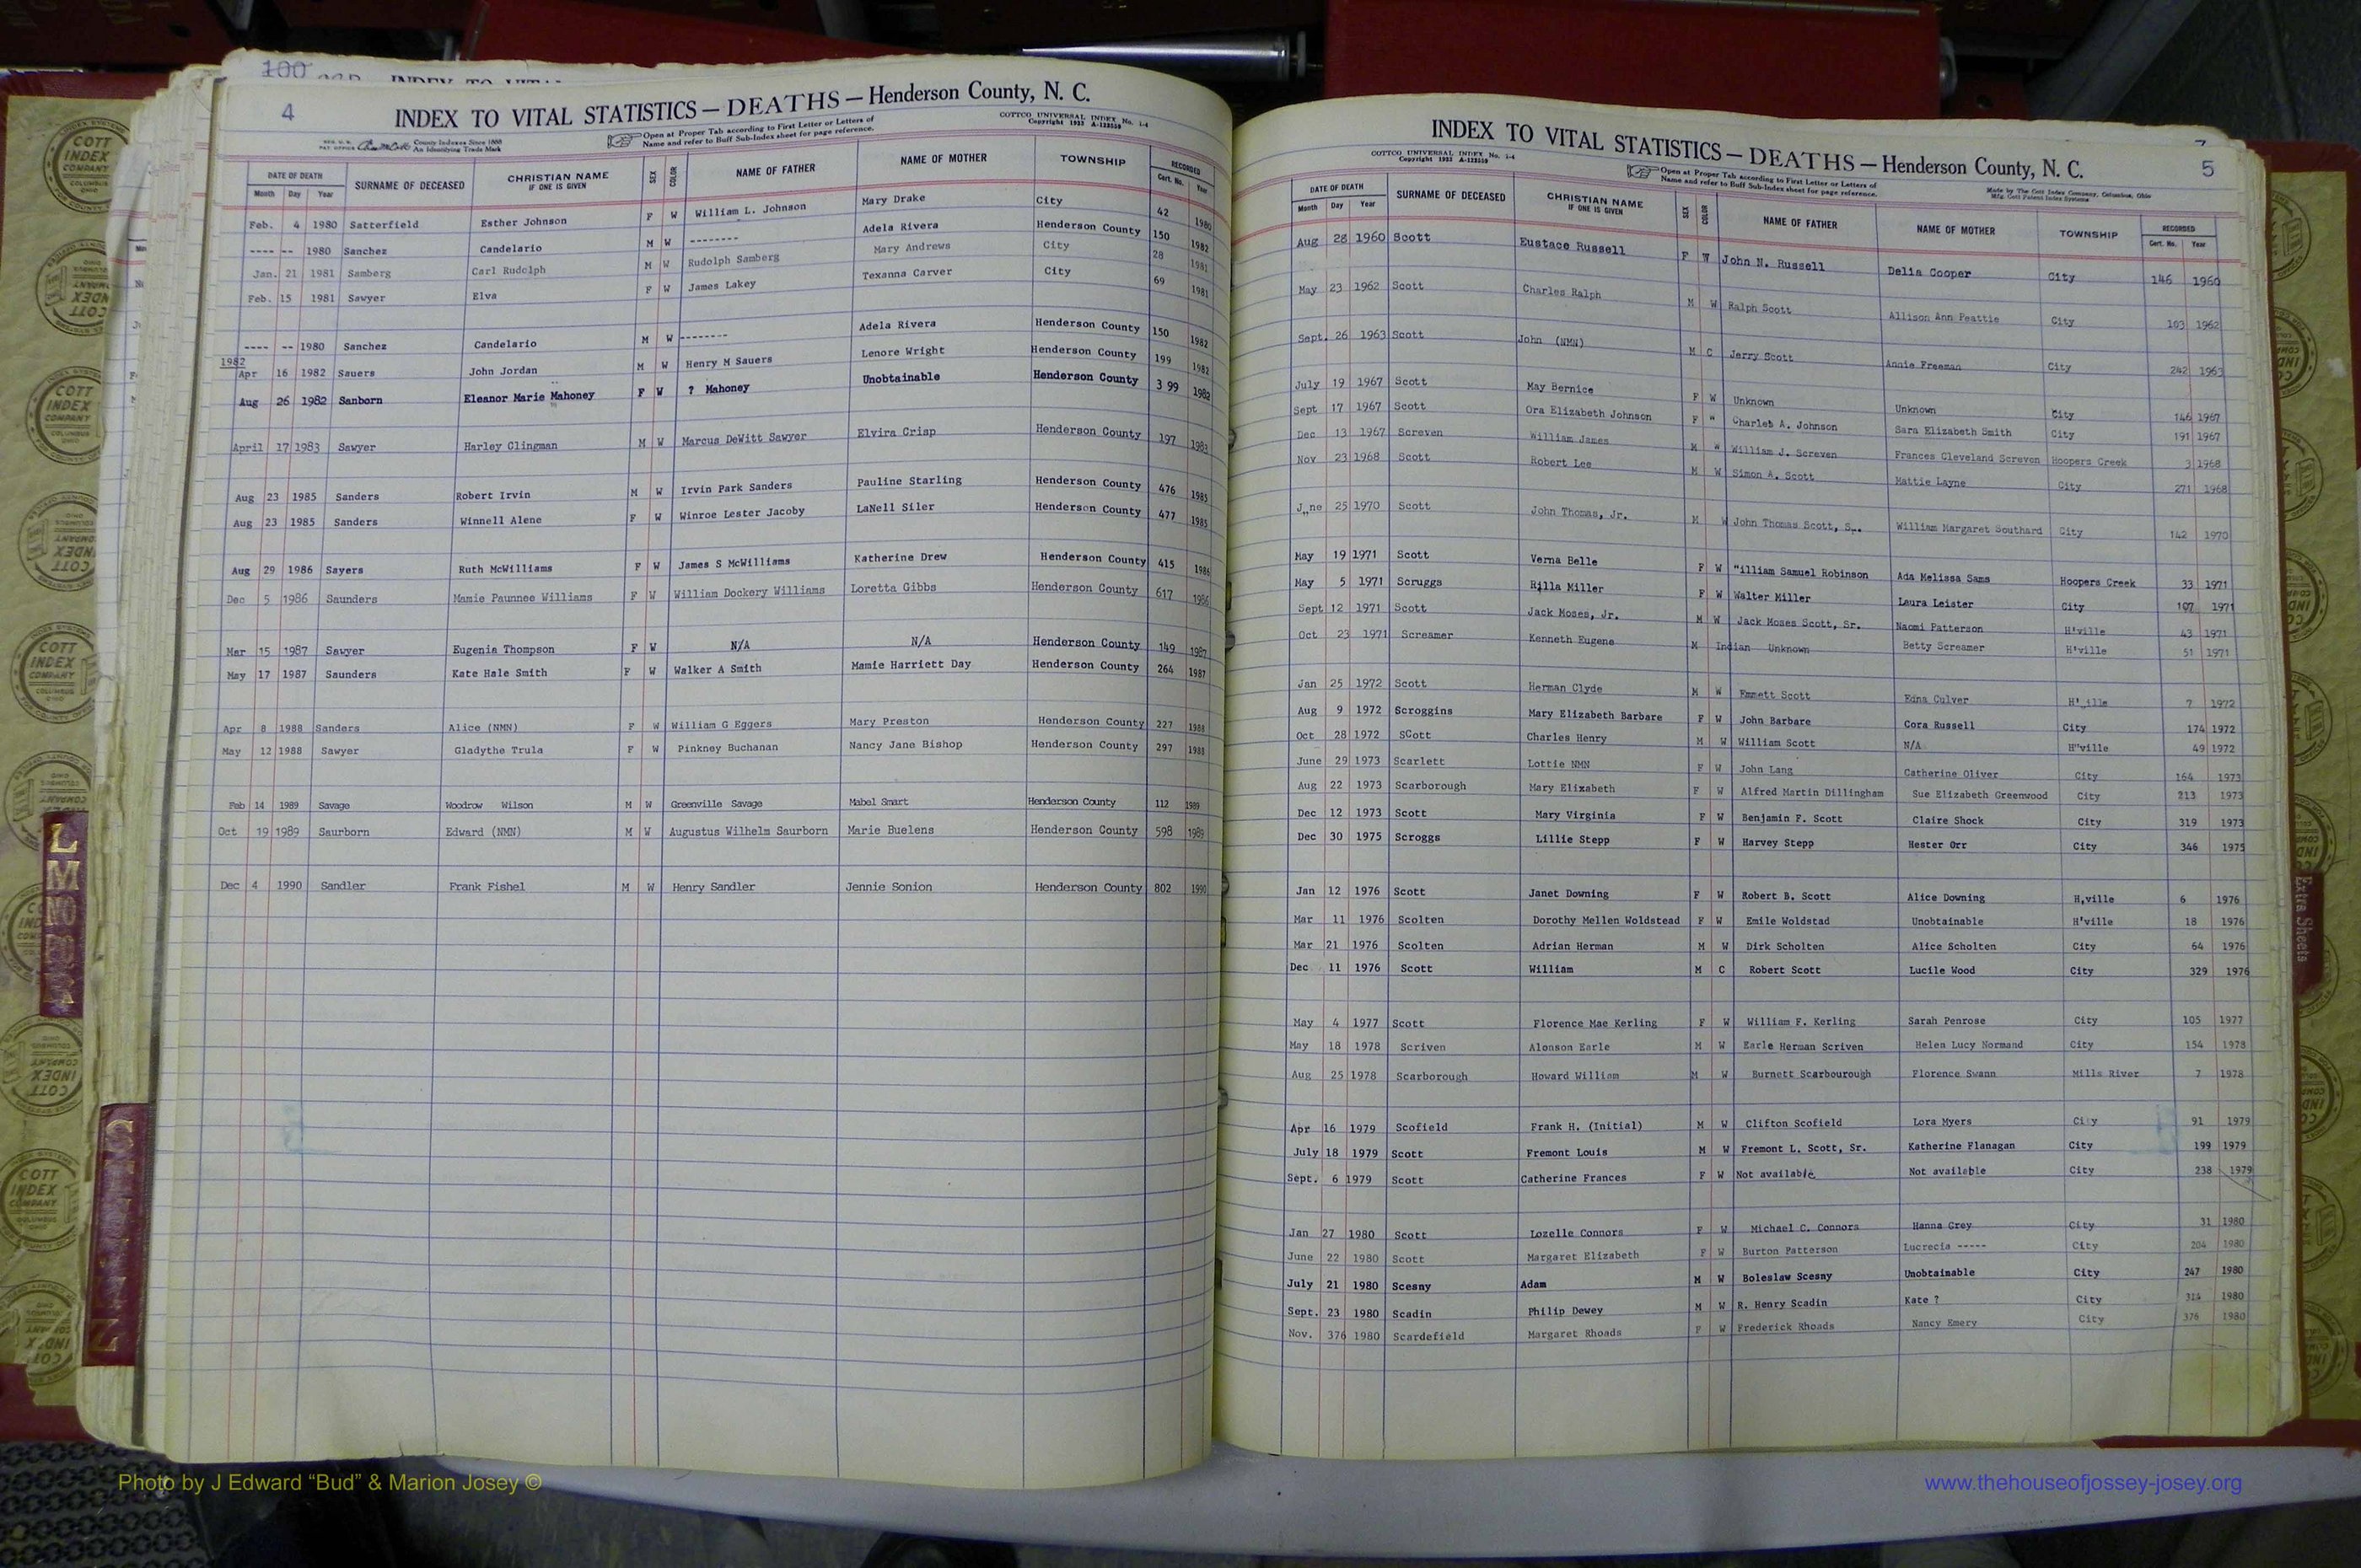 100
4
INDEX TO VITAL STATISTICS — DEATHS — Henderson County, N. C.
COTTCO UNIVERSAL INDEX No. 1-4
Copyright 1933 A-123559
County Indexes Since 1888
An Identifying Trade Mark
Open at Proper Tab according to First Letter or Letters of
Name and refer to Buff Sub-Index sheet for page reference.
DATE OF DEATH SURNAME OF DECEASED CHRISTIAN NAME IF ONE IS GIVEN SEX COLOR NAME OF FATHER NAME OF MOTHER TOWNSHIP RECORDED
Month Day Year Cert. No. Year
Feb. 4 1980 Satterfield Esther Johnson F W William L. Johnson Mary Drake City 42 1980
---- -- 1980 Sanchez Candelario M W -------- Adela Rivera Henderson County 150 1982
Jan. 21 1981 Samberg Carl Rudolph M W Rudolph Samberg Mary Andrews City 28 1981
Feb. 15 1981 Sawyer Elva F W James Lakey Texanna Carver City 69 1981
---- -- 1980 Sanchez Candelario M W -------- Adela Rivera Henderson County 150 1982
1982
Apr 16 1982 Sauers John Jordan M W Henry M Sauers Lenore Wright Henderson County 199 1982
Aug 26 1982 Sanborn Eleanor Marie Mahoney F W ? Mahoney Unobtainable Henderson County 3 99 1982
April 17 1983 Sawyer Harley Clingman M W Marcus DeWitt Sawyer Elvira Crisp Henderson County 197 1983
Aug 23 1985 Sanders Robert Irvin M W Irvin Park Sanders Pauline Starling Henderson County 476 1985
Aug 23 1985 Sanders Winnell Alene F W Winroe Lester Jacoby LaNell Siler Henderson County 477 1985
Aug 29 1986 Sayers Ruth McWilliams F W James S McWilliams Katherine Drew Henderson County 415 1986
Dec 5 1986 Saunders Mamie Paunnee Williams F W William Dockery Williams Loretta Gibbs Henderson County 617 1986
Mar 15 1987 Sawyer Eugenia Thompson F W N/A N/A Henderson County 149 1987
May 17 1987 Saunders Kate Hale Smith F W Walker A Smith Mamie Harriett Day Henderson County 264 1987
Apr 8 1988 Sanders Alice (NMN) F W William G Eggers Mary Preston Henderson County 227 1988
May 12 1988 Sawyer Gladythe Trula F W Pinkney Buchanan Nancy Jane Bishop Henderson County 297 1988
Feb 14 1989 Savage Woodrow Wilson M W Greenville Savage Mabel Smart Henderson County 112 1989
Oct 19 1989 Saurborn Edward (NMN) M W Augustus Wilhelm Saurborn Marie Buelens Henderson County 598 1989
Dec 4 1990 Sandler Frank Fishel M W Henry Sandler Jennie Sonion Henderson County 802 1990
5
INDEX TO VITAL STATISTICS — DEATHS — Henderson County, N. C.
COTTCO UNIVERSAL INDEX No. 1-4
Copyright 1933 A-123559
Open at Proper Tab according to First Letter or Letters of
Name and refer to Buff Sub-Index sheet for page reference.
Made by The Cott Index Company, Columbus, Ohio
Mfg. Cott Patent Index Systems
DATE OF DEATH SURNAME OF DECEASED CHRISTIAN NAME IF ONE IS GIVEN SEX COLOR NAME OF FATHER NAME OF MOTHER TOWNSHIP RECORDED
Month Day Year Cert. No. Year
Aug 28 1960 Scott Eustace Russell F W John N. Russell Delia Cooper City 146 1960
May 23 1962 Scott Charles Ralph M W Ralph Scott Allison Ann Peattie City 103 1962
Sept. 26 1963 Scott John (NMN) M C Jerry Scott Annie Freeman City 242 1963
July 19 1967 Scott May Bernice F W Unknown Unknown City 146 1967
Sept 17 1967 Scott Ora Elizabeth Johnson F W Charles A. Johnson Sara Elizabeth Smith City 191 1967
Dec 13 1967 Screven William James M W William J. Screven Frances Cleveland Screven Hoopers Creek 3 1968
Nov 23 1968 Scott Robert Lee M W Simon A. Scott Mattie Layne City 271 1968
J,,ne 25 1970 Scott John Thomas, Jr. M W John Thomas Scott, S.. William Margaret Southard City 142 1970
May 19 1971 Scott Verna Belle F W "illiam Samuel Robinson Ada Melissa Sams Hoopers Creek 33 1971
May 5 1971 Scruggs Rilla Miller F W Walter Miller Laura Leister City 107 1971
Sept 12 1971 Scott Jack Moses, Jr. M W Jack Moses Scott, Sr. Naomi Patterson H'ville 43 1971
Oct 23 1971 Screamer Kenneth Eugene M Indian Unknown Betty Screamer H'ville 51 1971
Jan 25 1972 Scott Herman Clyde M W Emmett Scott Edna Culver H'.ille 7 1972
Aug 9 1972 Scroggins Mary Elizabeth Barbare F W John Barbare Cora Russell City 174 1972
Oct 28 1972 SCott Charles Henry M W William Scott N/A H"ville 49 1972
June 29 1973 Scarlett Lottie NMN F W John Lang Catherine Oliver City 164 1973
Aug 22 1973 Scarborough Mary Elizabeth F W Alfred Martin Dillingham Sue Elizabeth Greenwood City 213 1973
Dec 12 1973 Scott Mary Virginia F W Benjamin F. Scott Claire Shock City 319 1973
Dec 30 1975 Scroggs Lillie Stepp F W Harvey Stepp Hester Orr City 346 1975
Jan 12 1976 Scott Janet Downing F W Robert B. Scott Alice Downing H,ville 6 1976
Mar 11 1976 Scolten Dorothy Mellen Woldstead F W Emile Woldstad Unobtainable H'ville 18 1976
Mar 21 1976 Scolten Adrian Herman M W Dirk Scholten Alice Scholten City 64 1976
Dec 11 1976 Scott William M C Robert Scott Lucile Wood City 329 1976
May 4 1977 Scott Florence Mae Kerling F W William F. Kerling Sarah Penrose City 105 1977
May 18 1978 Scriven Alonson Earle M W Earle Herman Scriven Helen Lucy Normand City 154 1978
Aug 25 1978 Scarborough Howard William M W Burnett Scarbourough Florence Swann Mills River 7 1978
Apr 16 1979 Scofield Frank H. (Initial) M W Clifton Scofield Lora Myers City 91 1979
July 18 1979 Scott Fremont Louis M W Fremont L. Scott, Sr. Katherine Flanagan City 199 1979
Sept. 6 1979 Scott Catherine Frances F W Not available Not available City 238 1979
Jan 27 1980 Scott Lozelle Connors F W Michael C. Connors Hanna Grey City 31 1980
June 22 1980 Scott Margaret Elizabeth F W Burton Patterson Lucrecia ----- City 204 1980
July 21 1980 Scesny Adam M W Boleslaw Scesny Unobtainable City 247 1980
Sept. 23 1980 Scadin Philip Dewey M W R. Henry Scadin Kate ? City 314 1980
Nov. 376 1980 Scardefield Margaret Rhoads F W Frederick Rhoads Nancy Emery City 376 1980
COTT INDEX COMPANY COLUMBUS OHIO
L M N O
Extra Sheets
Photo by J Edward “Bud” & Marion Josey ©
www.thehouseofjossey-josey.org